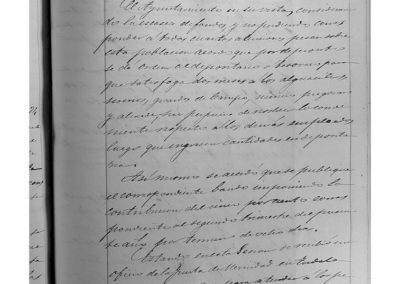 El Ayuntamiento en su vista, considerando
la escases de fondos y no pudiendo corres-
ponder a todas cuantas atenciones pesan sobre
esta poblacion acordó que por de pronto
se de orden al depositario o tesorero, para
que satisfaga dos meses a los alguaciles,
serenos, guardas de Campo, 
y alcaide, sin perjuicio de 
mente respecto a los demas empleados
luego que ingresen cantidades en deposita-
ria.
Asi mismo se acordó que se publique
el correspondiente bando imponiendo la
contribucion del cinco por ciento corres-
pondiente al segundo trimestre del presen-
te año, por termino de ocho dias.
Estando en esta Sesion se recibió un
oficio de la Junta de Sanidad en 
para atender a los